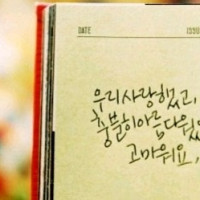 DATE
우리 사랑했고,
충분히 아름다웠
고마워요,